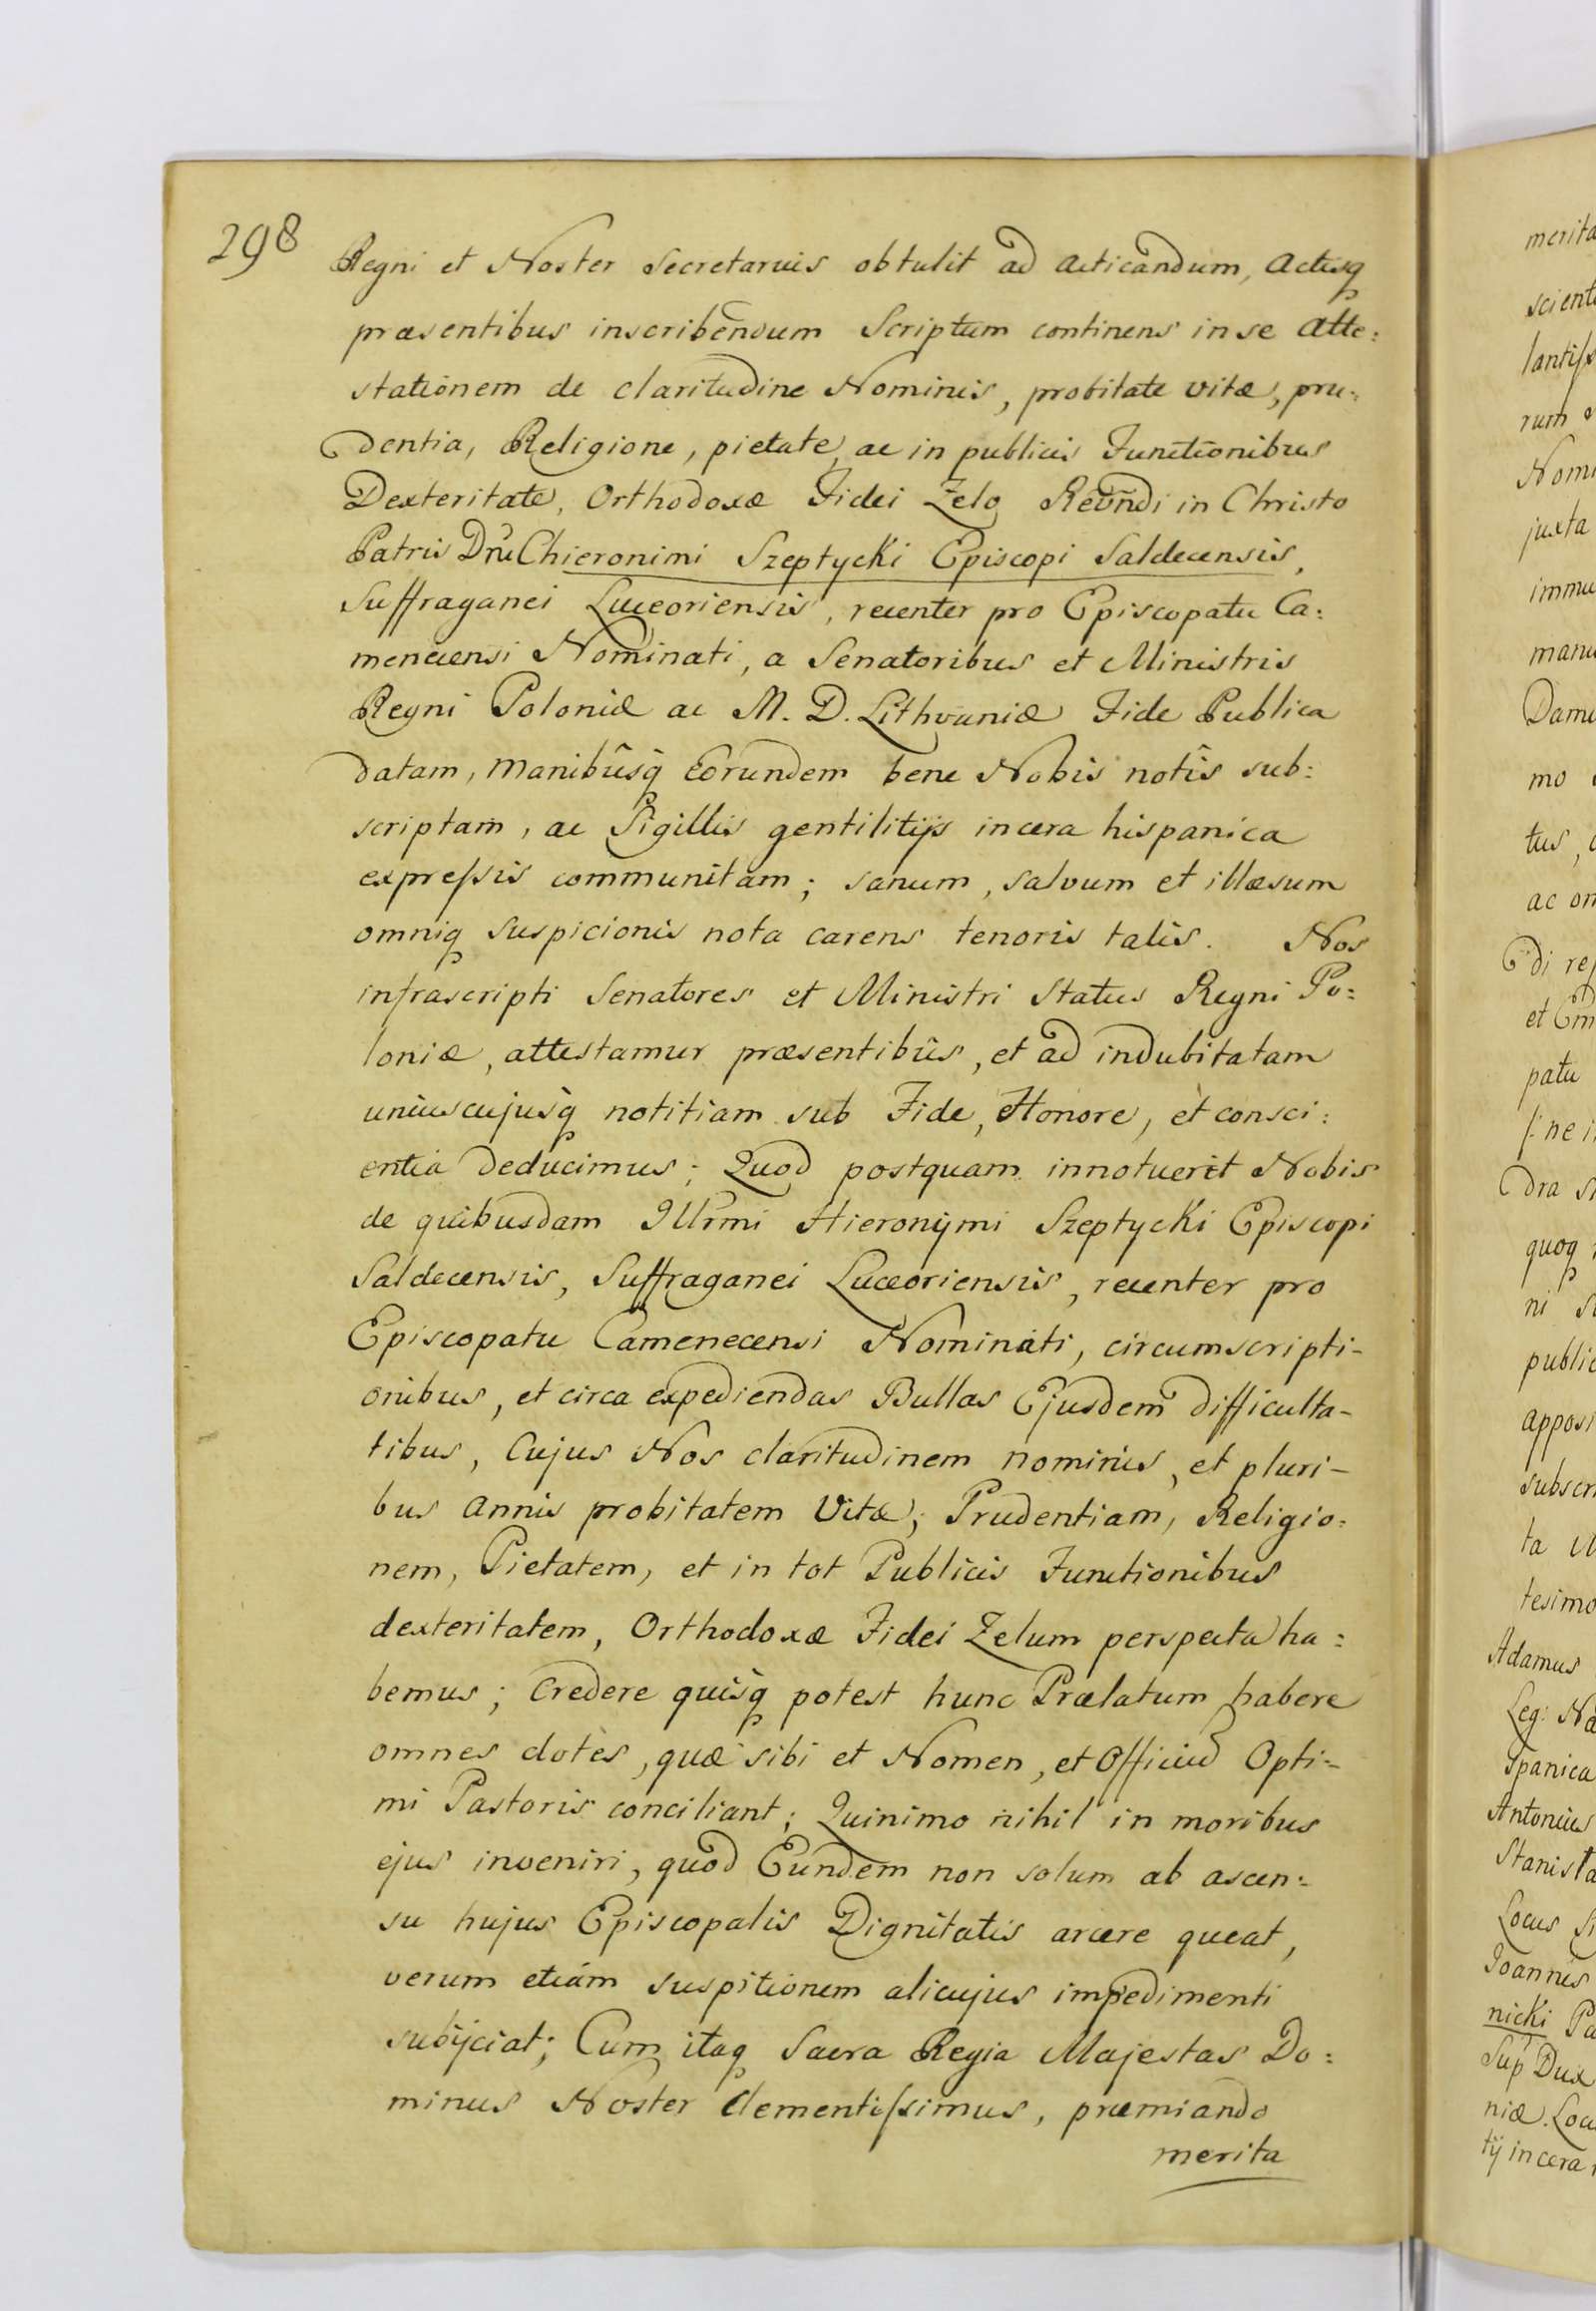 298
Regni et Noster Secretarius obtulit ad acticandum, actisq
præsentibus inscribendum Scriptum continens in se atte:
stationem de claritudine Nominis, probitate vitæ, pru:
dentia, Religione, pietate, ac in publicis Functionibus
Dexteritate, Orthodoxæ Fidei Zelo Reũndi in Christo
Patris Dñi Chieronimi Szeptycki Episcopi Saldecensis,
Suffraganei Luceoriensis, recenter pro Episcopatu Ca:
menecensi Nominati, a Senatoribus et Ministris
Regni Poloniæ ac M. D. Lithvaniæ Fide Publica
datam, manibûsq́ Eorundem bene Nobis notis sub:
scriptam, ac Sigillis gentilitijs in cera hispanica
expreſsis communitam; sanum, salvum et illæsum
omniq suspicionis nota carens tenoris talis. Nos
infrascripti Senatores et Ministri Status Regni Po:
loniæ, attestamur præsentibûs, et ad indubitatam
uniuscujusq́ notitiam sub Fide, Honore, et consci:
entia deducimus; Quod postquam innotuerit Nobis
de quibusdam Illrmi Hieronÿmi Szeptycki Episcopi
Saldecensis, Suffraganei Luceoriensis, recenter pro
Episcopatu Camenecensi Nominati, circumscripti-
onibus, et circa expediendas Bullas Ejusdem difficulta-
tibus, Cujus Nos claritudinem nominis, et pluri-
bus annis probitatem Vitæ, Prudentiam, Religio:
nem, Pietatem, et in tot Publicis Functionibus
dexteritatem, Orthodoxæ Fidei Zelum perspecta ha:
bemus; Credere quisq́ potest hunc Prælatum habere
omnes dotes, quæ sibi et Nomen, et Officiũ Opti-
mi Pastoris conciliant; Quinimo nihil in moribus
ejus inveniri, quod Eundem non solum ab ascen:
su hujus Episcopalis Dignitatis arcere queat,
verum etiam suspitionem alicujus impedimenti
subijciat; Cum itaq Sacra Regia Majestas Do:
minus Noster Clementiſsimus, præmiando
merita
merita
scient
lantiſs
rum
Nomi
juxta
immu
manu
mo
tus,
ac om
di
et
patu
dra
quoq
ni
public
apposi
subscr
ta
tesimo
Adamus
Leg:
spanica
Antonius
Stanisła
Locus
Joannis
nicki
Sup Dux
niæ. Locu
tij in cera